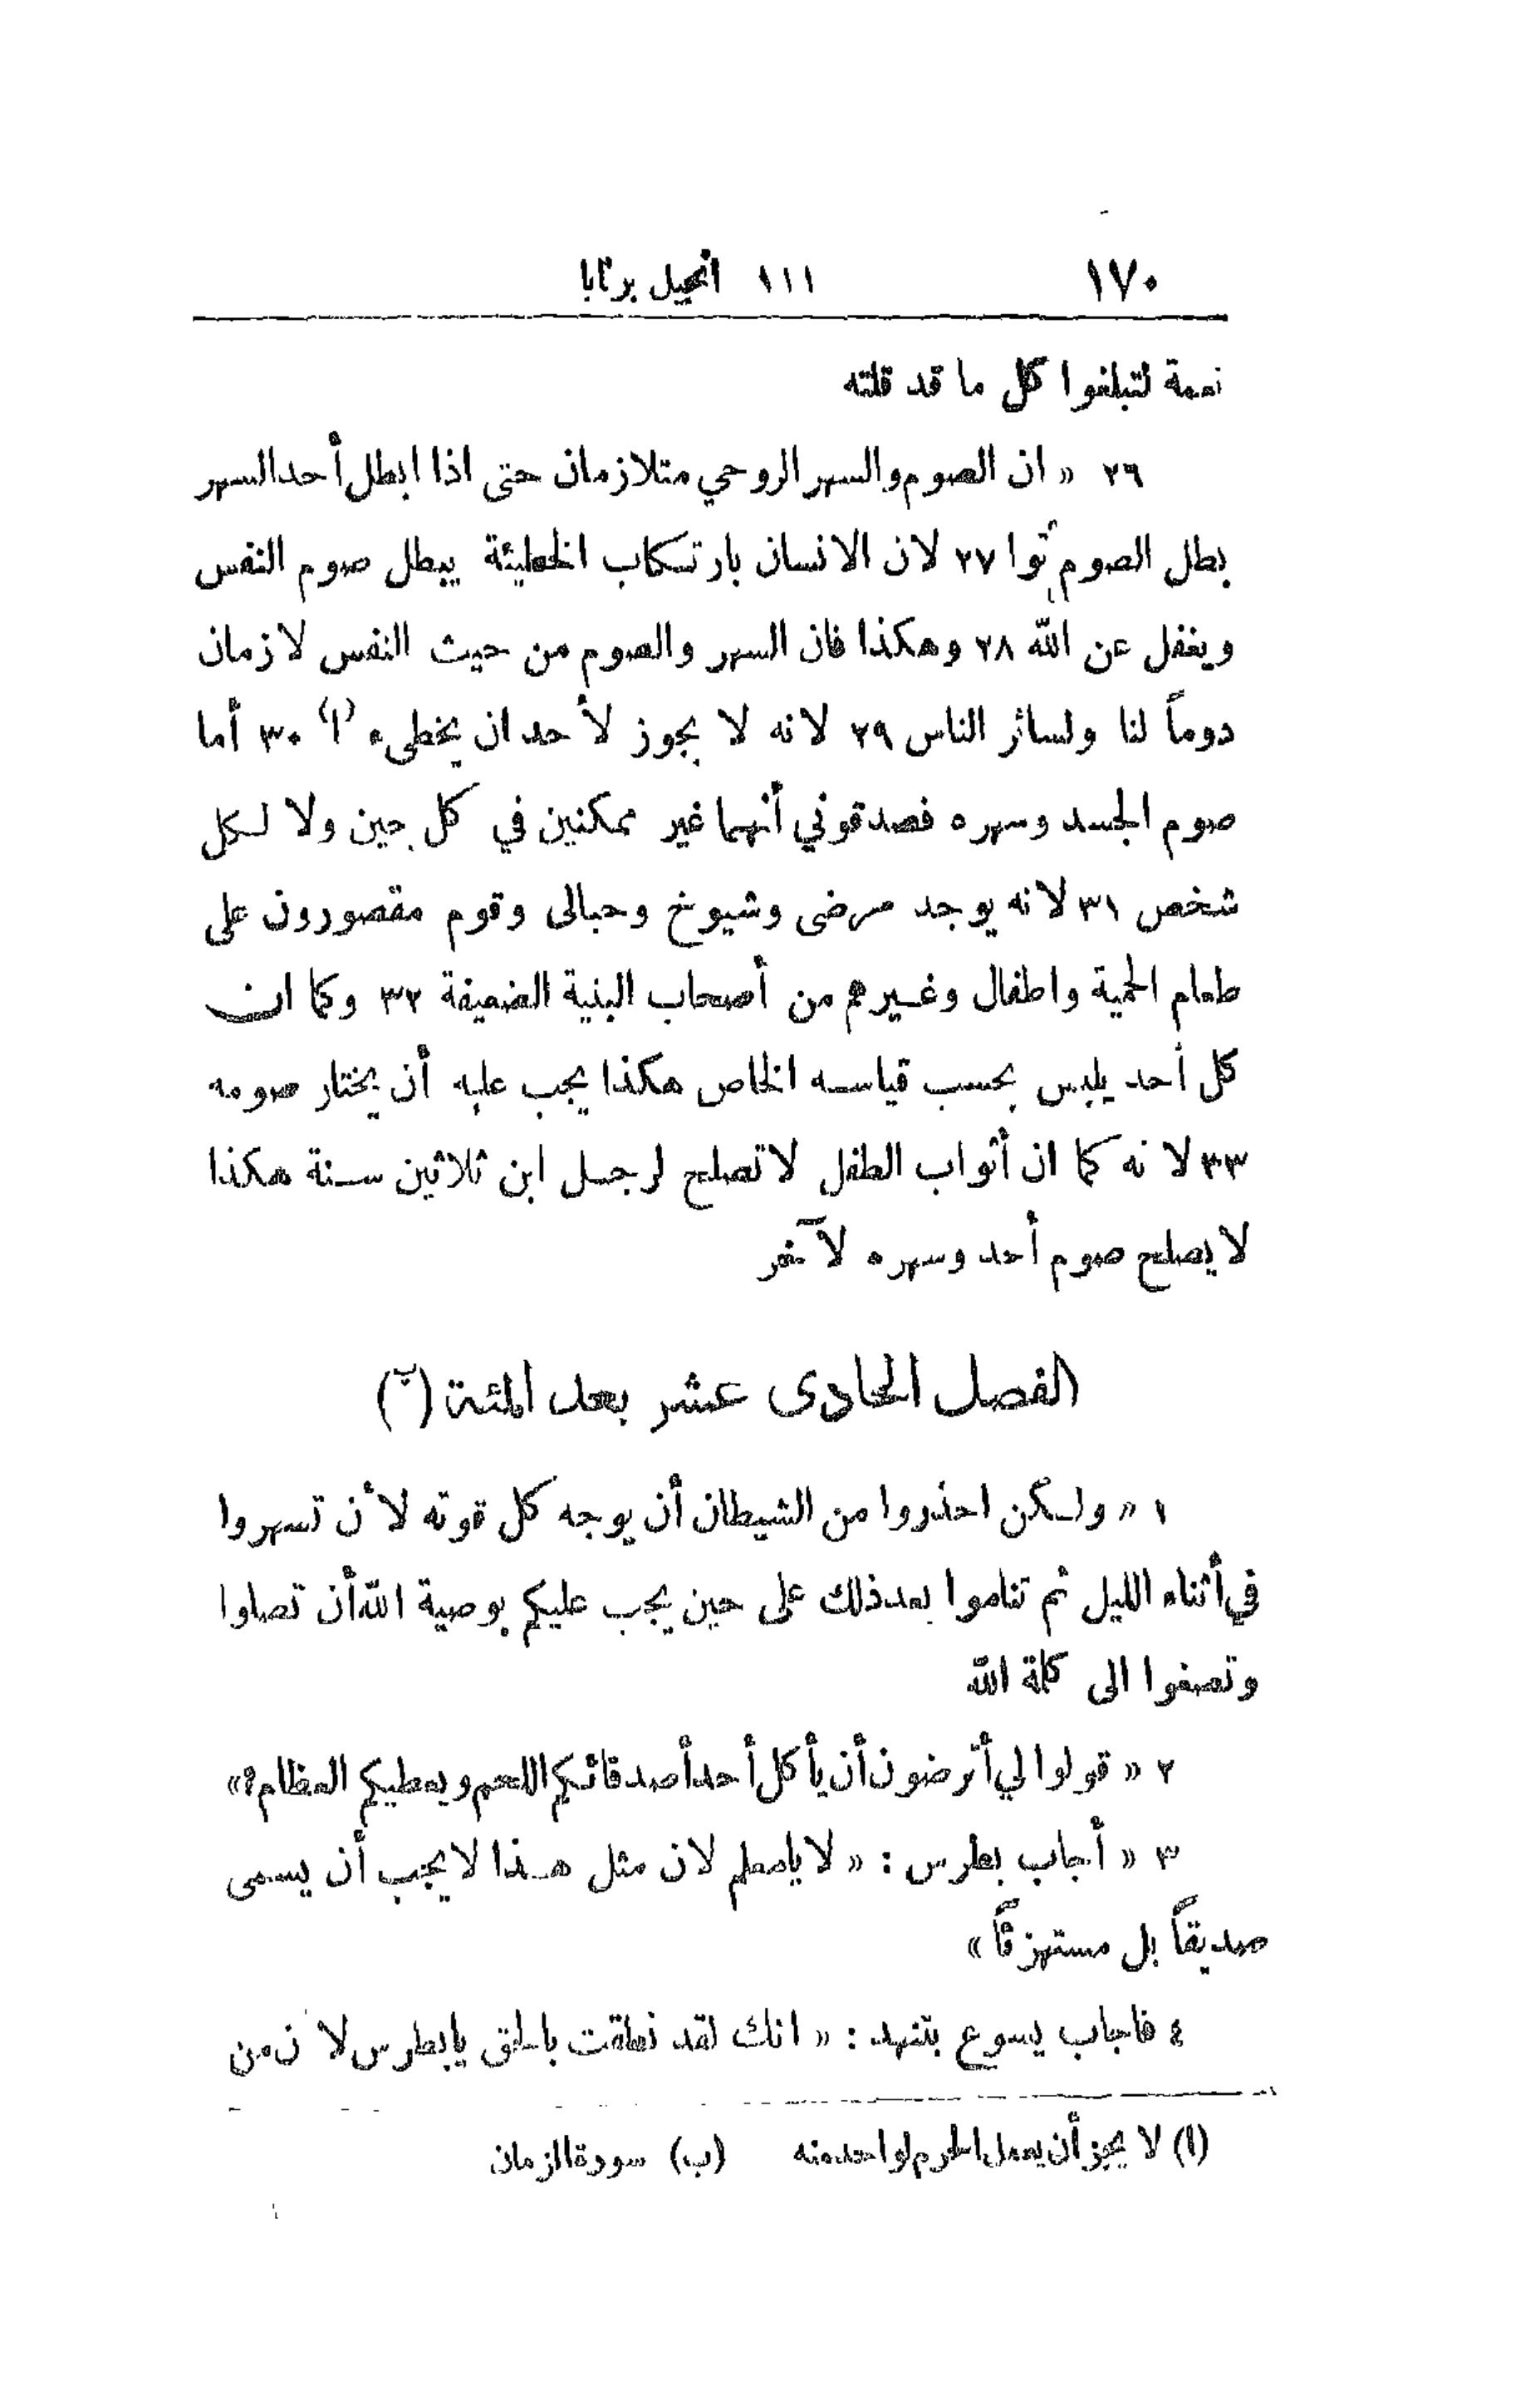 ١٧٠ ١١١ انجيل برنابا
نعمة لتبلغوا كل ما قد قلته
٢٦ « ان الصوم والسهر الروحي متلازمان حتى اذا ابطل أحد السهر
بطل الصوم تواً ٢٧ لان الانسان بارتكاب الخطيئة يبطل صوم النفس
ويغفل عن الله ٢٨ وهكذا فان السهر والصوم من حيث النفس لازمان
دوماً لنا ولسائر الناس ٢٩ لانه لا يجوز لأحد ان يخطىء (ا) ٣٠ أما
صوم الجسد وسهره فصدقوني أنهما غير ممكنين في كل حين ولا لكل
شخص ٣١ لانه يوجد مرضى وشيوخ وحبالى وقوم مقصورون على
طعام الحمية واطفال وغيرهم من أصحاب البنية الضعيفة ٣٢ وكما ان
كل أحد يلبس بحسب قياسه الخاص هكذا يجب عليه أن يختار صومه
٣٣ لانه كما ان أثواب الطفل لا تصلح لرجل ابن ثلاثين سنة هكذا
لا يصلح صوم أحد وسهره لآخر
الفصل الحادى عشر بعد المئة (ب)
١ « ولكن احذروا من الشيطان أن يوجه كل قوته لأن تسهروا
في أثناء الليل ثم تناموا بعد ذلك على حين يجب عليكم بوصية الله أن تصلوا
وتصغوا الى كلمة الله
٢ « قولوا لي أترضون أن يأكل أحد أصدقائكم اللحم ويعطيكم العظام ؟ »
٣ « أجاب بطرس : « لا يا معلم لان مثل هذا لا يجب أن يسمى
صديقاً بل مستهزئاً »
٤ فاجاب يسوع بتنهد : « انك لقد نطقت بالحق يا بطرس لان من
(ا) لا يجيز أن يعمل الحرم لواحد منه (ب) سورة الزمان